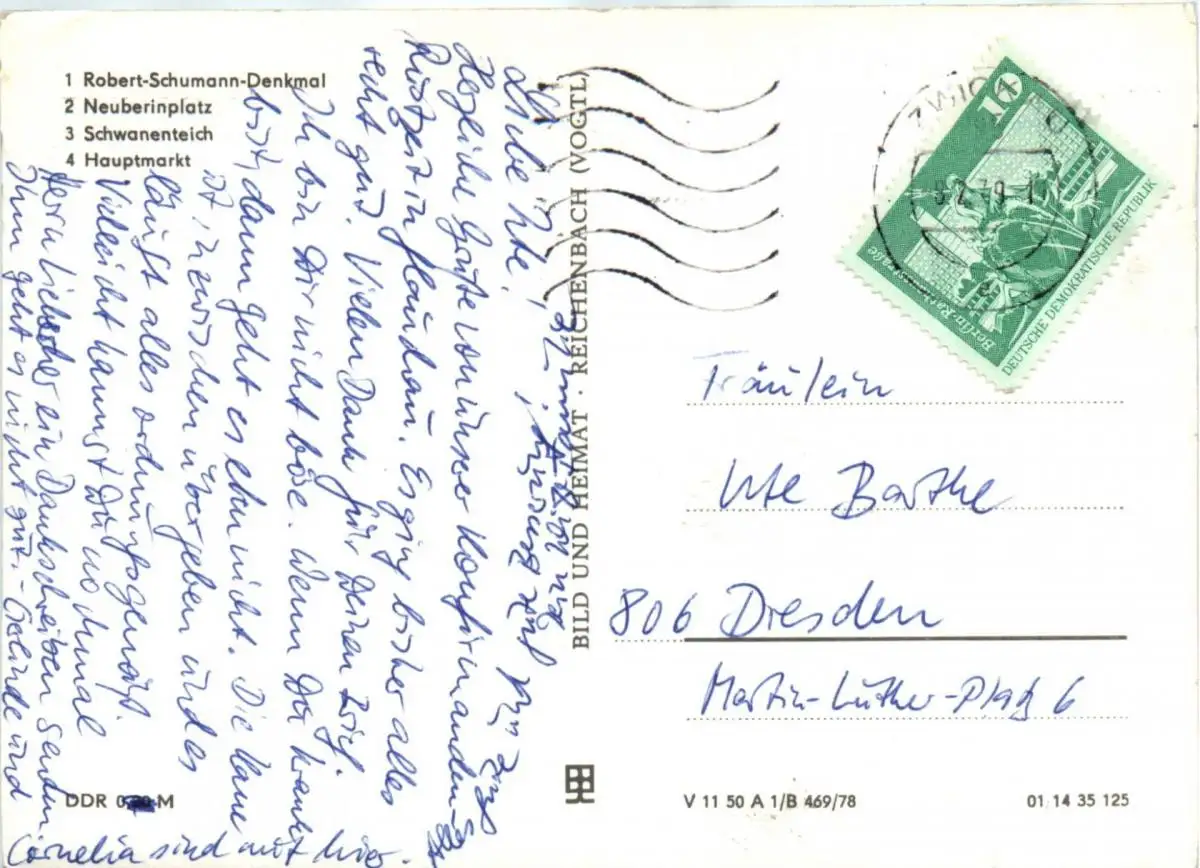 1 Robert-Schumann-Denkmal
2 Neuberinplatz
3 Schwanenteich
4 Hauptmarkt
Liebe Ute!
Herzliche Grüße von unserer Konfirmanden-
Rüstzeit in Planchau. Es ging bisher alles
recht gut. Vielen Dank für Deinen Brief.
Ich bin Dir nicht böse. Wenn Du krank
bist, dann geht es eben nicht. Die
ist inzwischen übergeben und es
läuft alles ordnungsgemäß.
Vielleicht kannst Du nochmal
Herrn ein Dankschreiben senden.
Ihm geht es nicht gut. – und
Cornelia sind mit hier.
BILD UND HEIMAT · REICHENBACH (VOGTL)
ZWICKAU
10
Berlin-Rathausstraße
DEUTSCHE DEMOKRATISCHE REPUBLIK
Fräulein
Ute Barthe
806 Dresden
Martin-Luther-Platz 6
DDR M
V 11 50 A 1/B 469/78
01 14 35 125